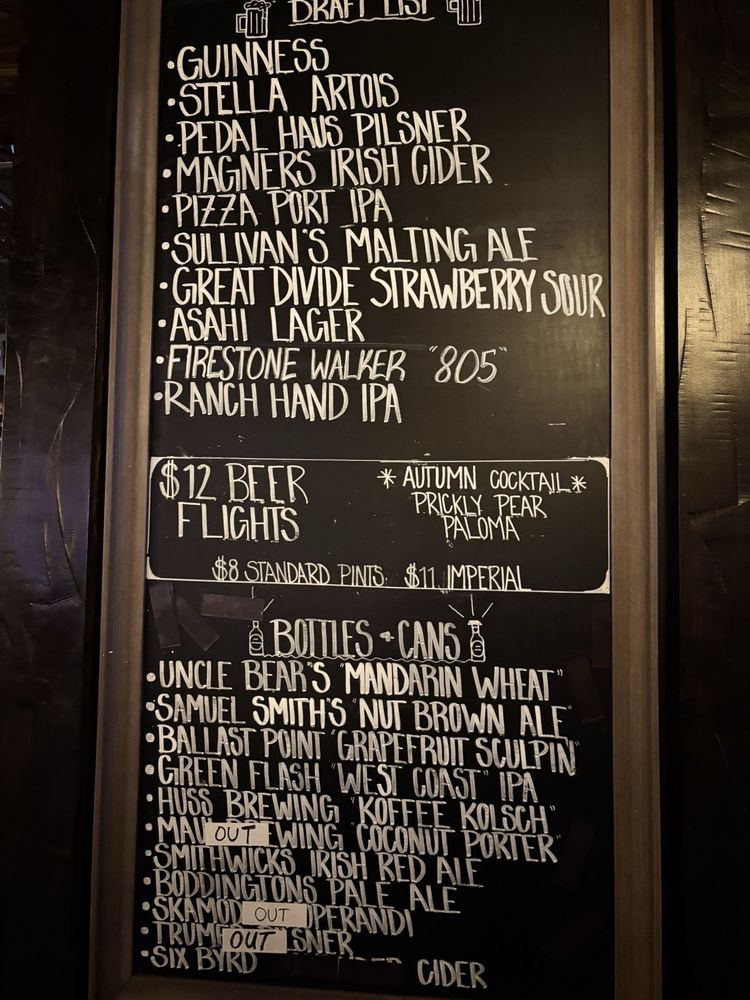 DRAFT LIST
•GUINNESS
•STELLA ARTOIS
•PEDAL HAUS PILSNER
•MAGNERS IRISH CIDER
•PIZZA PORT IPA
•SULLIVAN'S MALTING ALE
•GREAT DIVIDE STRAWBERRY SOUR
•ASAHI LAGER
•FIRESTONE WALKER "805"
•RANCH HAND IPA
$12 BEER
FLIGHTS
* AUTUMN COCKTAIL *
PRICKLY PEAR
PALOMA
$8 STANDARD PINTS $11 IMPERIAL
BOTTLES + CANS
•UNCLE BEAR'S "MANDARIN WHEAT"
•SAMUEL SMITH'S "NUT BROWN ALE"
•BALLAST POINT "GRAPEFRUIT SCULPIN"
•GREEN FLASH "WEST COAST" IPA
•HUSS BREWING "KOFFEE KOLSCH"
•MAUI OUT EWING "COCONUT PORTER"
•SMITHWICKS IRISH RED ALE
•BODDINGTONS PALE ALE
•SKAMOD OUT OPERANDI
•TRUM OUT SNER
•SIX BYRD CIDER